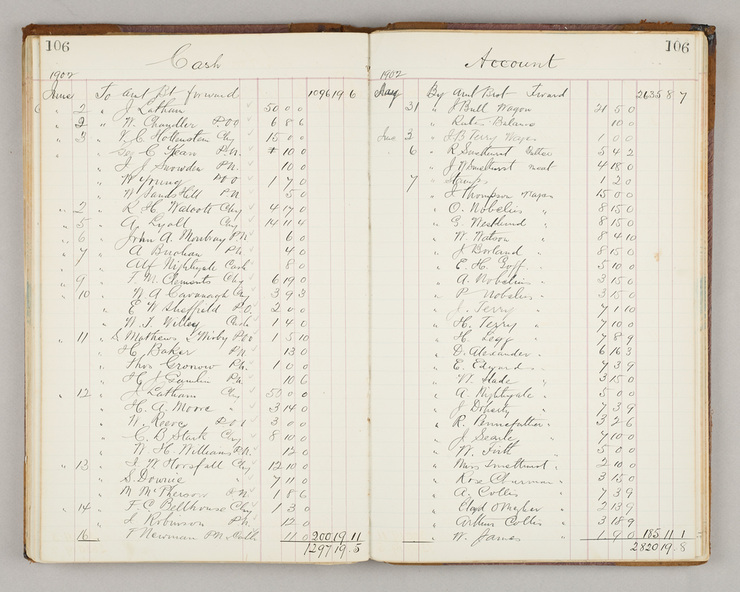 106
Cash
1902
June To amt Bt forward 1096 19 6
2 " J Latham 50 0 0
2 " W. Chandler P.O.O 6 8 6
3 " Chq 15 0 0
" C. Kean P.N. 10 0
" J. J. Snowden P.N. 10 0
" W Young P.O.O 1 7 0
" W P.N. 5 0
2 " R. H. Walcott Chq 4 17 0
5 " A. Lyall Chq 14 11 4
6 " John A. Monbray P.N 6 0
7 " A P.N. 4 0
" Alf Nightingale Cash 8 0
9 " M. Clements Chq 6 19 0
10 " W A Cavanagh Chq 3 9 3
" E W Sheffield P.O. 2 0 0
" W. J. Willey Cash 1 4 0
11 " S Mathews P.O.O 1 5 10
" H. Baker P.N. 13 0
" Thos Gronow P.N. 1 0 0
" H. J P.N. 10 6
12 " J. Latham Chq 50 0 0
" H. A. Moore " 3 14 0
" W. Reeve P.O.O 3 0 0
" C. B Stark Chq 8 10 0
" W. H. Williams P.N. 12 0
13 " W Horsfall Chq 12 10 0
" S. Downie " 7 11 0
" M McPherson P.N. 1 8 6
14 " F. C Bellhouse Chq 1 3 0
" J Robinson P.N. 12 0
16 " T Newman P.N. 11 0 200 19 11
1297 19 5
106
Account
1902
May By Amt Brot Forward 2635 8 7
31 " J Bull Wagon 21 5 0
" Balance 10 0
June 3 " J B Terry Wages 1 0 0
6 " R Smethurst 5 4 2
" J W Smethurst meat 4 18 0
7 " Stamps 1 2 0
" J Thompson Wages 15 0 0
" O. Nobelius " 8 15 0
" G. Nestlund " 8 15 0
" W Watson " 8 4 10
" J Borland " 8 15 0
" E. H. Goff " 5 10 0
" A. Nobelius " 3 15 0
" P. Nobelius " 3 15 0
" J. Terry " 7 1 10
" H. Terry " 7 10 0
" H. Legg " 7 8 9
" D. Alexander " 6 16 3
" E. Edgard " 7 3 9
" W. Slade " 3 15 0
" A. Nightingale " 5 0 0
" J Doherty " 7 3 9
" R. Pennefather " 3 2 6
" J Searle " 7 10 0
" W. Firth " 5 0 0
" Miss Smethurst " 2 10 0
" Rose " 3 15 0
" A. Coller " 7 3 9
" Maher " 2 13 9
" Arthur Coller " 3 18 9
" W. James " 1 9 0 185 11 1
2820 19 8